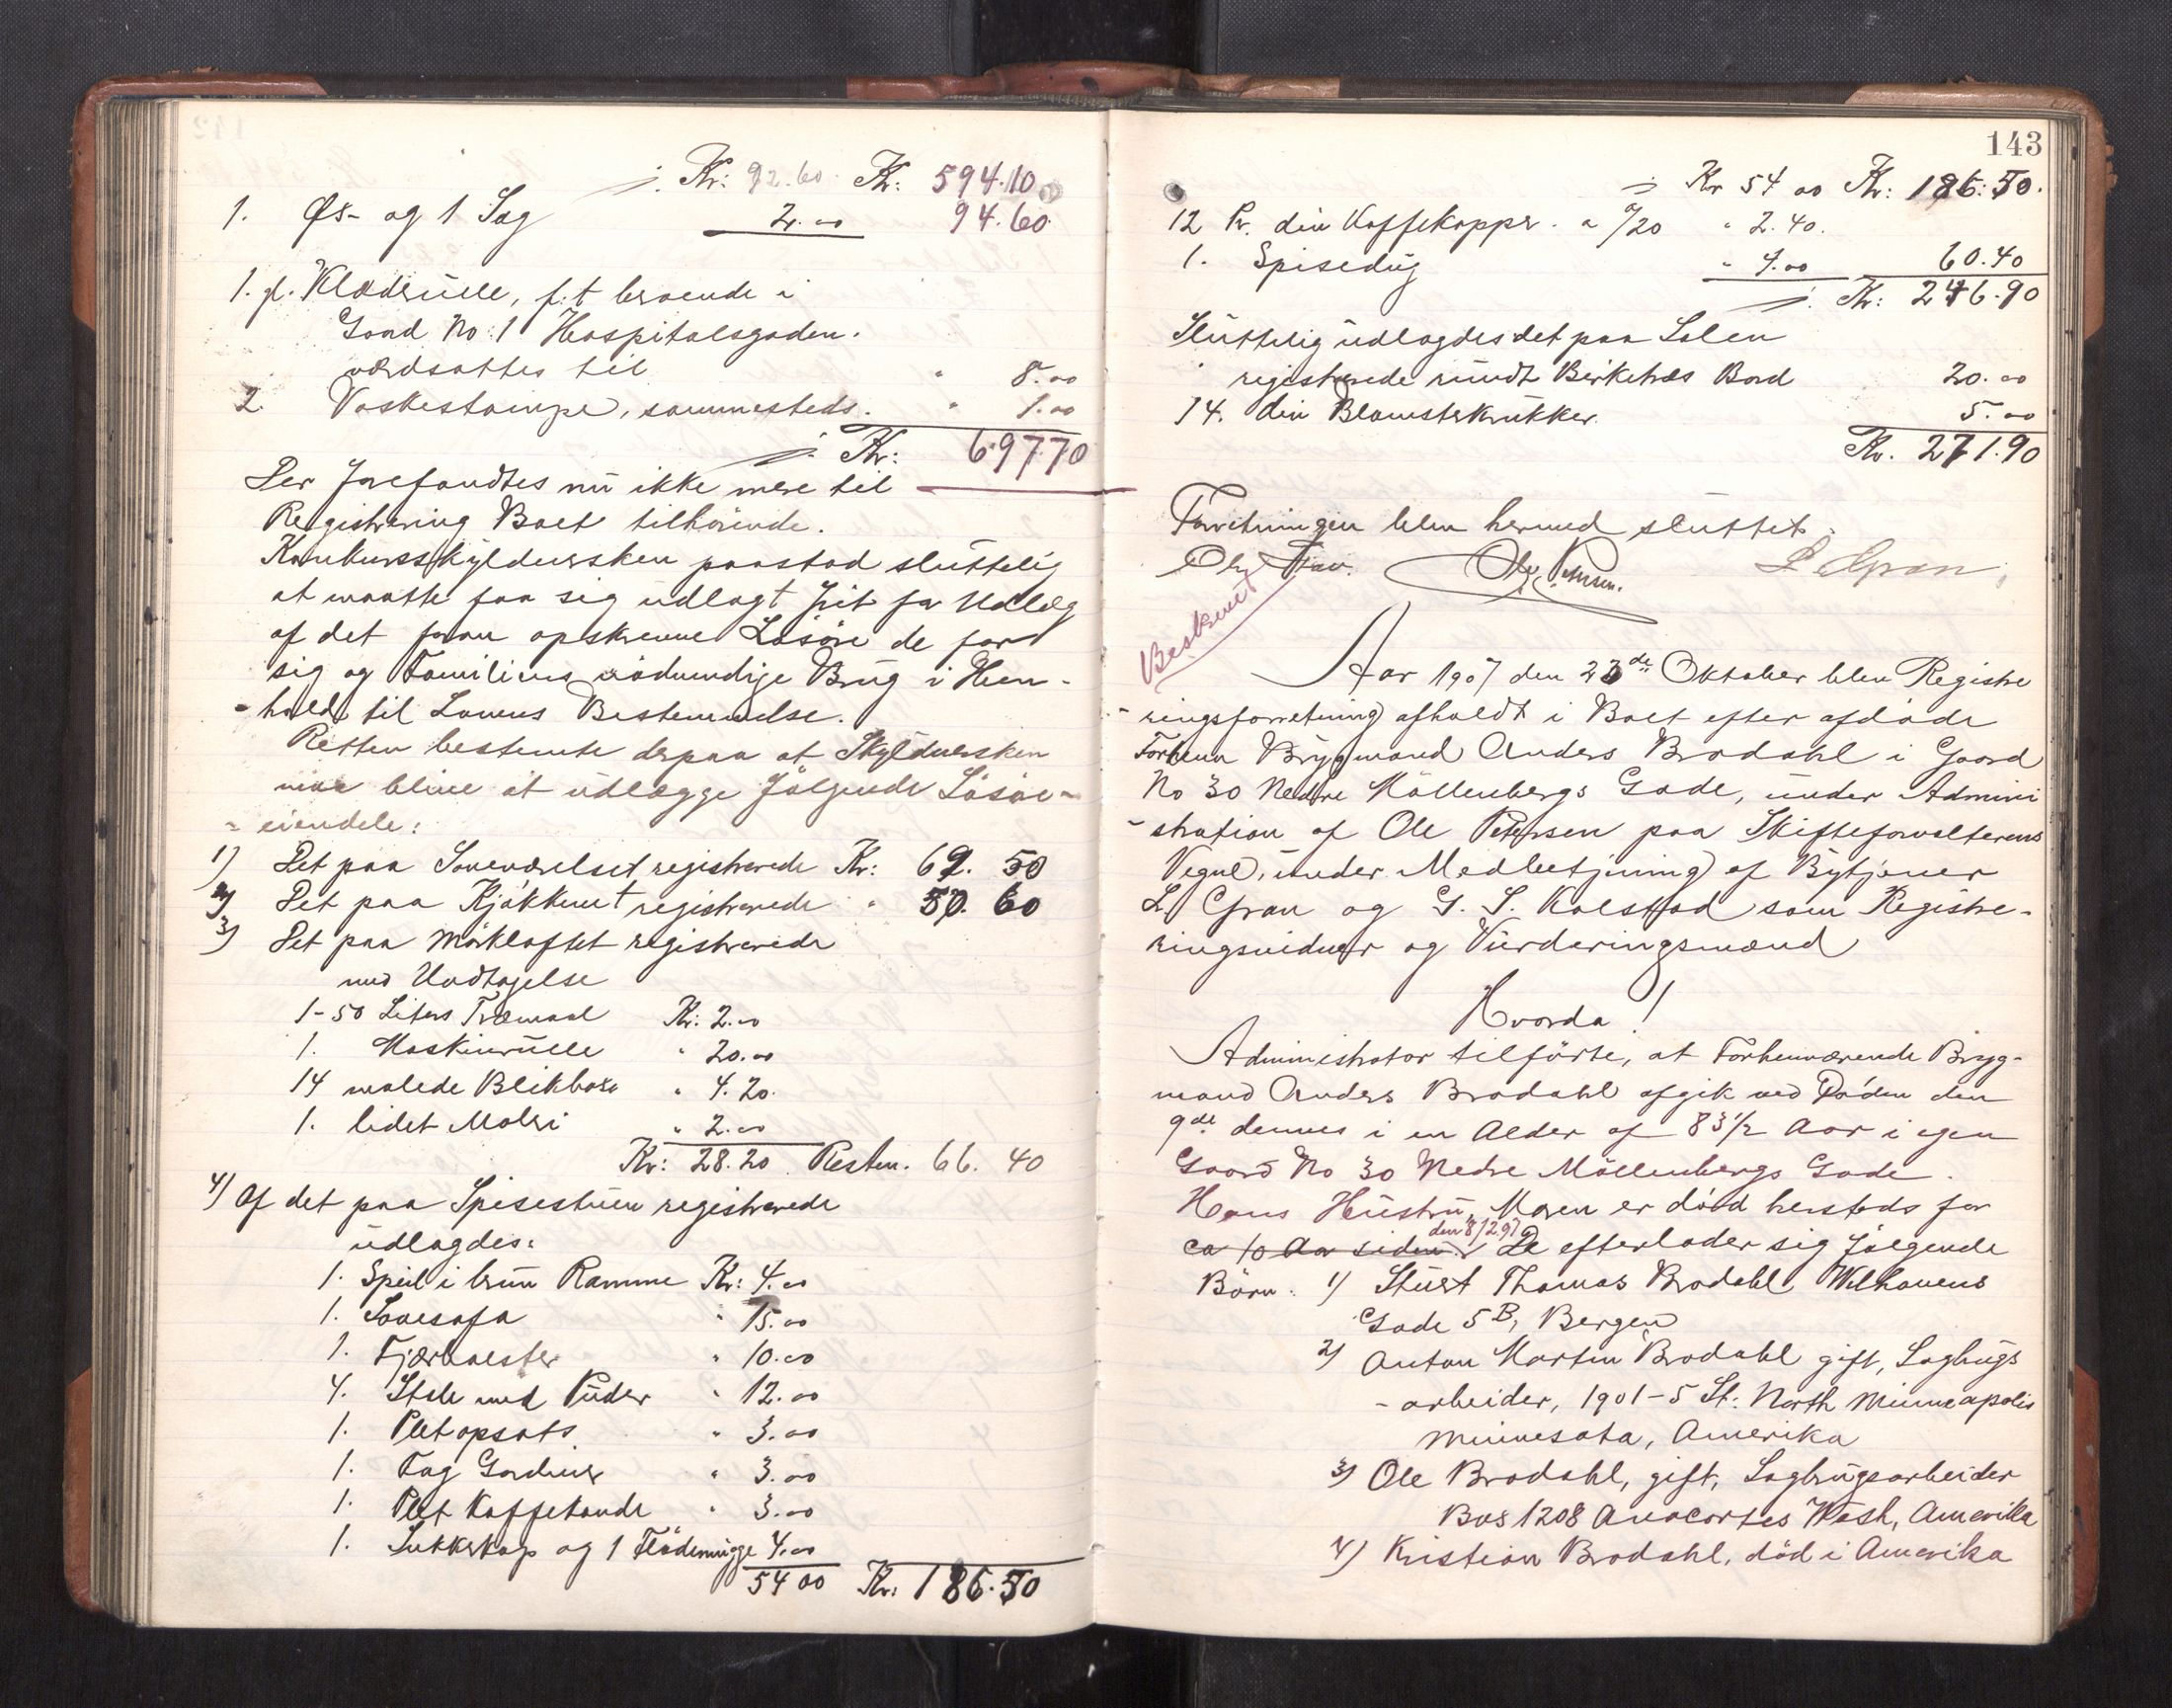 /. Kr: 92.60 Kr: 594.10
1. Øs- og 1 Sag 2.00 94.60
1. gl. Klædrulle, f:t beroende i
Gaard No: 1 Hospitalsgaden.
værdsattes til " 8.00
2. Vaskestampe, sammesteds. " 1.00
/. Kr: 697.70
Der forefandtes nu ikke mere til
Registrering Boet tilhørende.
Konkursskyldnersken paastod sluttelig
at maatte faa sig udlagt frit for Udlæg
af det foran opskrevne Løsøre de for
sig og Familiens nødvendige Brug i Hen-
-hold til Lovens Bestemmelse.
Retten bestemte derpaa at Skyldnersken
blive at udlægge følgende Løsøre-
-eiendele:
1) Det paa Soveværelset registrerede Kr: 69. 50
2) Det paa Kjøkkenet registrerede " 50. 60
3) Det paa Mørkloftet registrerede
med Undtagelse
1-50 Liters Træmaal Kr: 2.00
1. Maskinrulle " 20.00
14 malede Blikbokse " 4.20.
1. lidet Maleri " 2.00
Kr: 28.20 Resten. 66. 40
4) Af det paa Spisestuen registrerede
udlagdes:
1. Speil i brun Ramme Kr: 4.00
1. Sovesofa " 15.00
1. Fjærhoester " 10.00
4. Stole med Puder " 12.00
1. Pletopsats " 3.00
1. Fag Gardiner " 3.00
1. Plet Kaffekande " 3.00
1. Sukkerkop og 1 Flødemugge 4.00
54 00 Kr: 186.50
143
/. Kr 54 00 Kr: 186.50.
12 Pr. div Kaffekopper. a /20 " 2.40.
1. Spisedug " 4.00 60.40
/. Kr: 246.90
Sluttelig udlagdes det paa Salen
registrerede rundt Birketræs Bord 20.00
14. div Blomsterkrukker. 5.00
Kr. 271.90
Forretningen blev hermed sluttet.
L Gran,
Beskrevet
Aar 1907 den 23de Oktober blev Registre
-ringsforretning afholdt i Boet efter afdøde
Forhenv Brygmand Anders Brodahl i Gaard
No 30 Nedre Møllenbergs Gade, under Admini
-stration af Ole Petersen paa Skifteforvalterens
Vegne, under Medbetjening af Bytjener
L Gran og G. S. Kolstad som Registre-
ringsvidner og Vurderingsmænd
Hvorda!
Administrator tilførte, at Forhenværende Bryg-
mand Anders Brodahl afgik ved Døden den
9de dennes i en Alder af 83 1/2 Aar i egen
Gaard No 30 Nedre Møllenbergs Gade.
Hans Hustru, Maren er død hersteds for
den 8/2.97
ca 10 Aar siden. De efterlader sig følgende
Børn: 1) Stuert Thomas Brodahl Welhavens
Gade 5B, Bergen
2) Anton Martin Brodahl gift, Sagbrugs
-arbeider, 1901-5 St: North Minneapolis
Minnesota, Amerika
3) Ole Brodahl, gift, Sagbrugsarbeider
Box 1208 Anacortes Wash, Amerika
4) Kristian Brodahl, død i Amerika